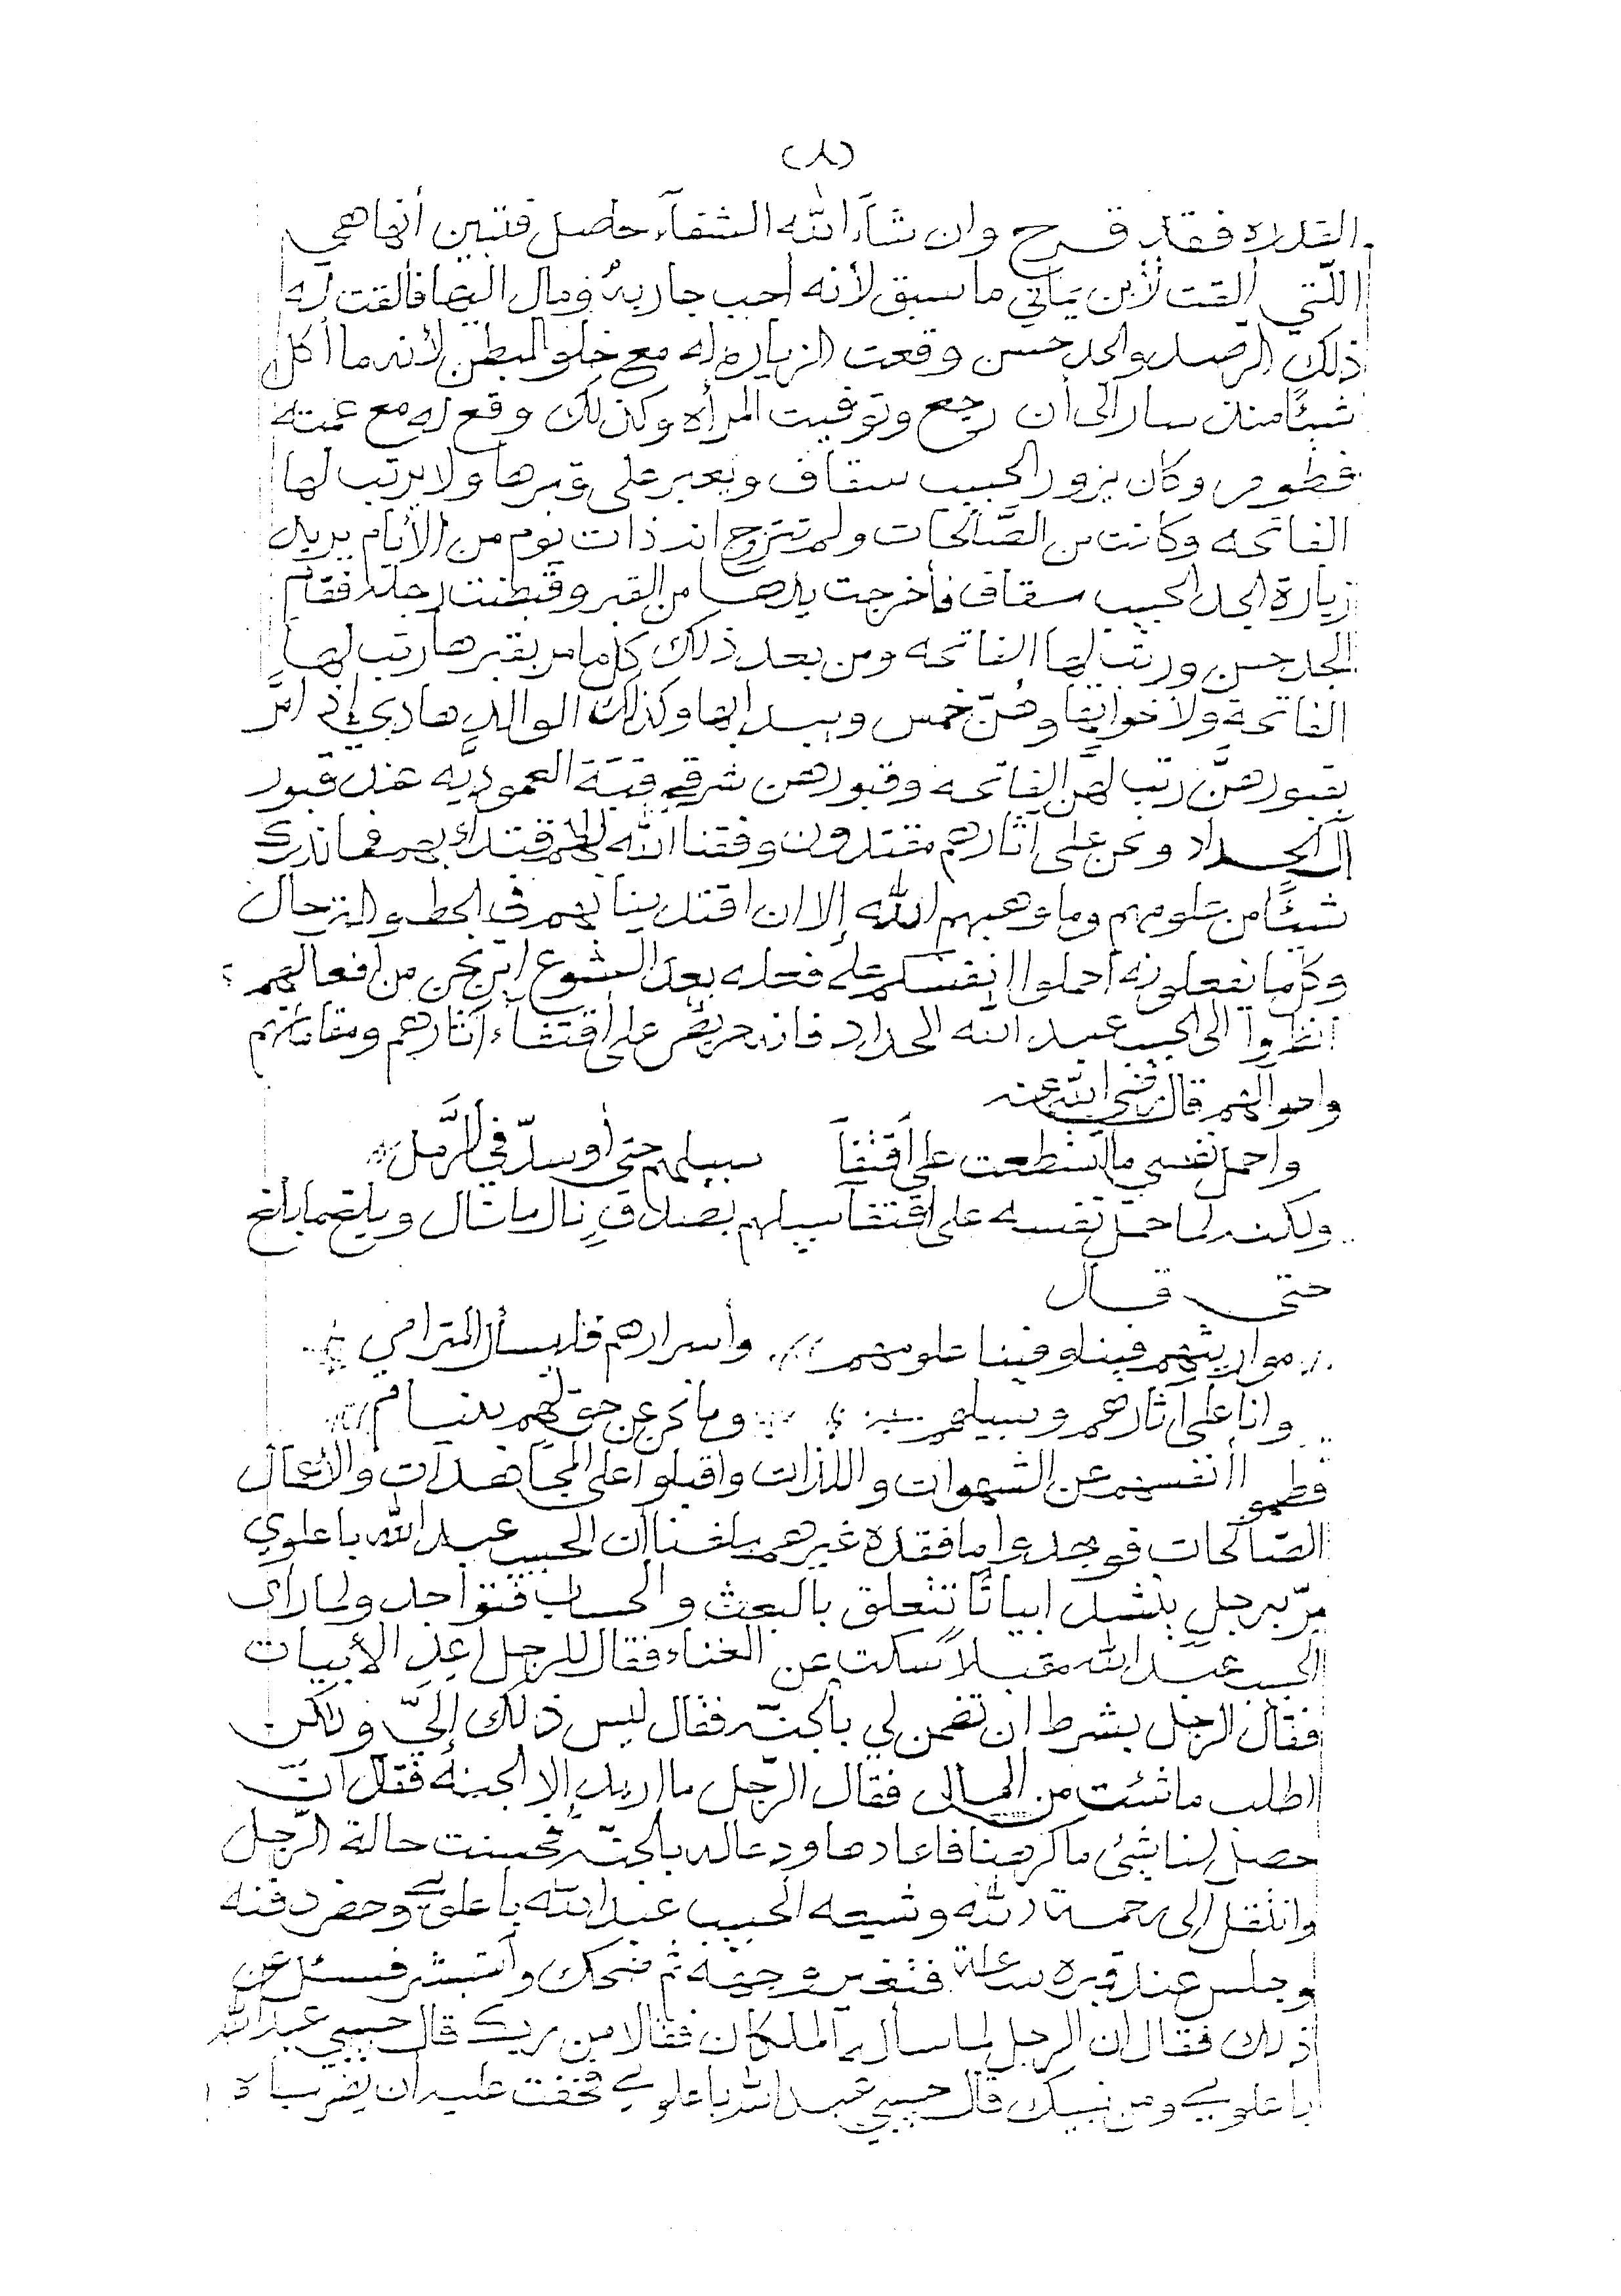 (٨)
القلاه فقد قرح وان شآء الله الشفآء حاصل فتبين أنها هي
اللّتي ألقت لأبن يماني ما سبق لأنه أحب جارية ومال اليها فألقت له
ذلك الرصد والجد حسن وقعت الزيارة له مع خلو البطن لأنه ما أكل
شيئًا منذ سار الى أن رجع وتوفيت المرأه وكذلك وقع له مع عمته
فطوم وكان يزور الحبيب سقاف ويعبر على قبرها ولا يرتب لها
الفاتحه وكانت من الصَّالحات ولم تتزوج اند ذات يوم من الأيام يريد
زيارة الجد الحبيب سقاف فأخرجت يدها من القبر وقبظت رجله فقام
الجد حسن ورتب لها الفاتحه ومن بعد ذلك كل ما مر بقبرها رتب لها
الفاتحة ولأخواتها وهُنّ خمس ويبدا بها وكذلك الوالد هادي إذ امَّر
بقبورهنَّ رتب لهنّ الفاتحه وقبورهن شرقي قبَّة العموديّه عند قبور
آل الحداد ونحن على آثارهم مقتدون وفقنا الله للإقتداء بهم فما ندرك
شيئًا من علومهم وما وهبهم الله إلا ان اقتدينا بهم في الحط والترحال
وكل ما يفعلونه احملوا انفسكم على فعله بعد الشوع اين نحن من أفعالهم
انظروا الى الحبيب عبد الله الحداد فانه حريص على أقتفاء آثارهم ومقاماتهم
واحوالهم قال رضي الله عنه
واحمل نفسي ما اسطعت على أقتفآ سبيلهم حتى أوسدّ في الرَّمل
ولكنه لما حمل نفسه على اقتفآ سبيلهم بصدقٍ نال ما نال وبلغ ما بلغ
حتى قال
مواريثهم فينا وفينا علومهم وأسرارهم فليسأل المترامي
وانا على آثارهم وسبيلهم وما نحن عن حق لهم بنيام
فطموا أنفسهم عن الشهوات واللذات واقبلوا على المجاهدات والأعمال
الصالحات فوجدوا ما فقده غيرهم بلغنا أن الحبيب عبد الله باعلوي
مرّ برجل ينشد ابياتًا تتعلق بالبعث والحساب فتواجد ولما رأى
الحبيب عبد الله مقبلاً سكت عن الغناء فقال للرجل أعِد الأبيات
فقال الرجل بشرط ان تضمن لي بالجنّه فقال ليس ذلك إليّ ولكن
اطلب ما شئت من المال فقال الرّجل ما اريد إلا الجنه فقال انّ
حصل لنا شيئ ما كرهنا فاعادها ودعا له بالجنّه فحسنت حالة الرّجل
وانتقل الى رحمة الله وشيعه الحبيب عبد الله باعلوي وحضر دفنه
وجلس عند قبره ساعة فتغير وجهه ثم ضحك وأستبشر فسئل عن
ذلك فقال ان الرجل لما سأله الملكان فقالا من ربك قال حبيبي عبد الله
باعلوي ومن نبيك قال حبيبي عبد الله باعلوي فخفت عليه ان يضرباه